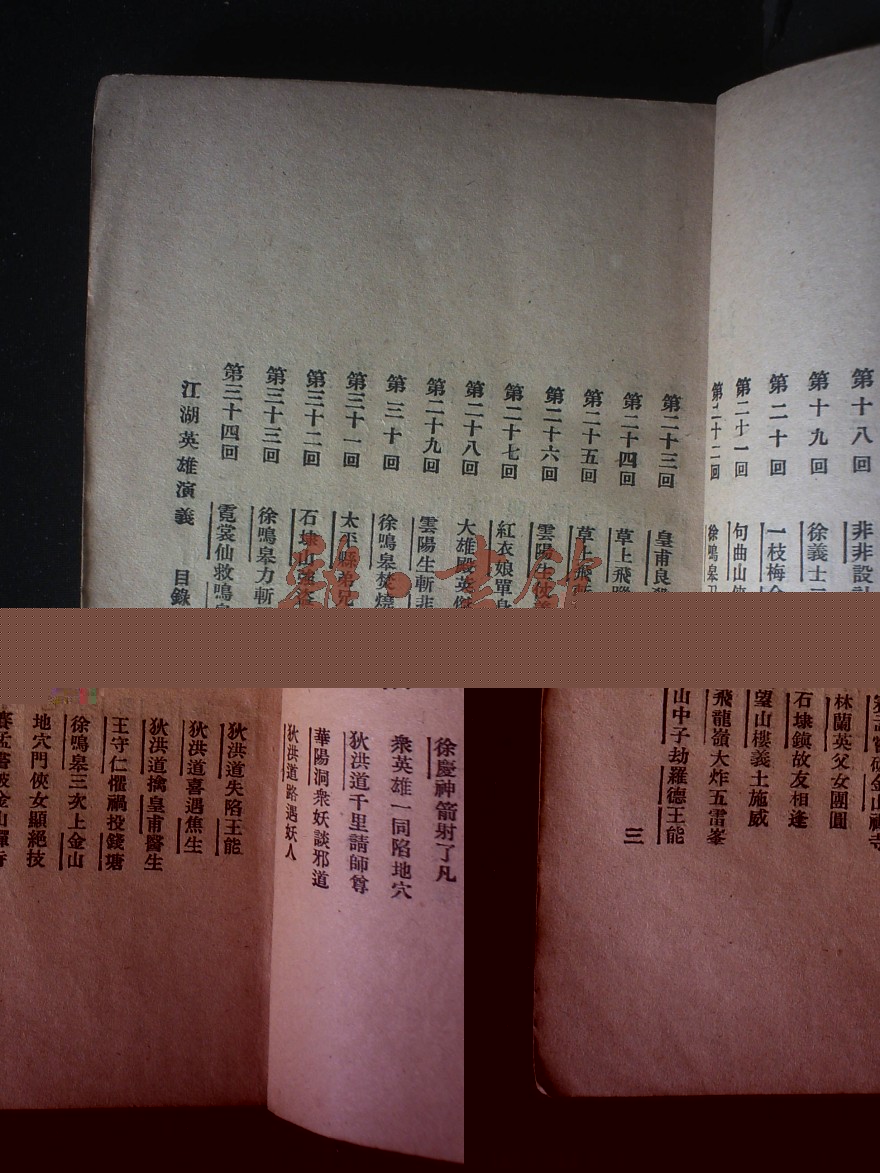 第十八回 非非設計
第十九回 徐義士
第二十回 一枝梅
第二十一回 句曲山
第二十二回 徐鳴皋
第二十三回 皇甫良
第二十四回 草上飛
第二十五回 草上飛
第二十六回 雲陽生仗義
第二十七回 紅衣娘單身
第二十八回 大雄殿英傑
第二十九回 雲陽生斬非
第三十回 徐鳴皋焚燒
第三十一回 太平縣弟兄
第三十二回 石埭山強盜
第三十三回 徐鳴皋力斬
第三十四回 霓裳仙救鳴
江湖英雄演義 目錄
破金山禪寺
林蘭英父女團圓
石埭鎮故友相逢
望山樓義士施威
飛龍嶺大炸五雷峯
山中子劫羅德王能
三
徐慶神箭射了凡
衆英雄一同陷地穴
狄洪道千里請師尊
華陽洞衆妖談邪道
狄洪道路遇妖人
狄洪道失陷王能
狄洪道喜遇焦生
狄洪道擒皇甫醫生
王守仁懼禍投錢塘
徐鳴皋三次上金山
地穴門俠女顯絕技
破金山禪寺